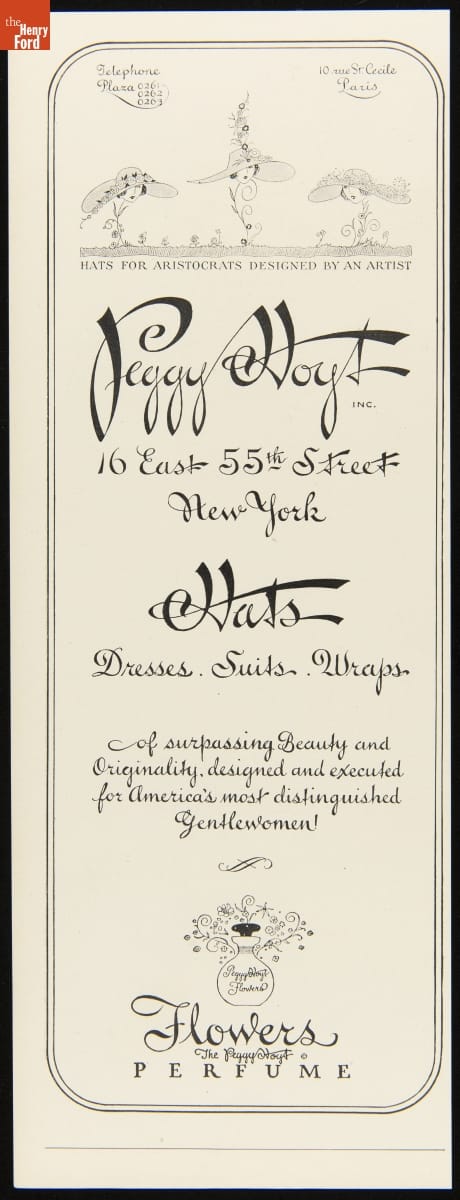 the
Henry
Ford
Telephone
Plaza 0261
0262
0263
10 rue St. Cecile
Paris
HATS FOR ARISTOCRATS DESIGNED BY AN ARTIST
Peggy Hoyt
INC.
16 East 55th Street
New York
Hats
Dresses. Suits. Wraps
of surpassing Beauty and
Originality, designed and executed
for America's most distinguished
Gentlewomen!
Peggy Hoyt
Flowers
Flowers
The Peggy Hoyt ©
PERFUME